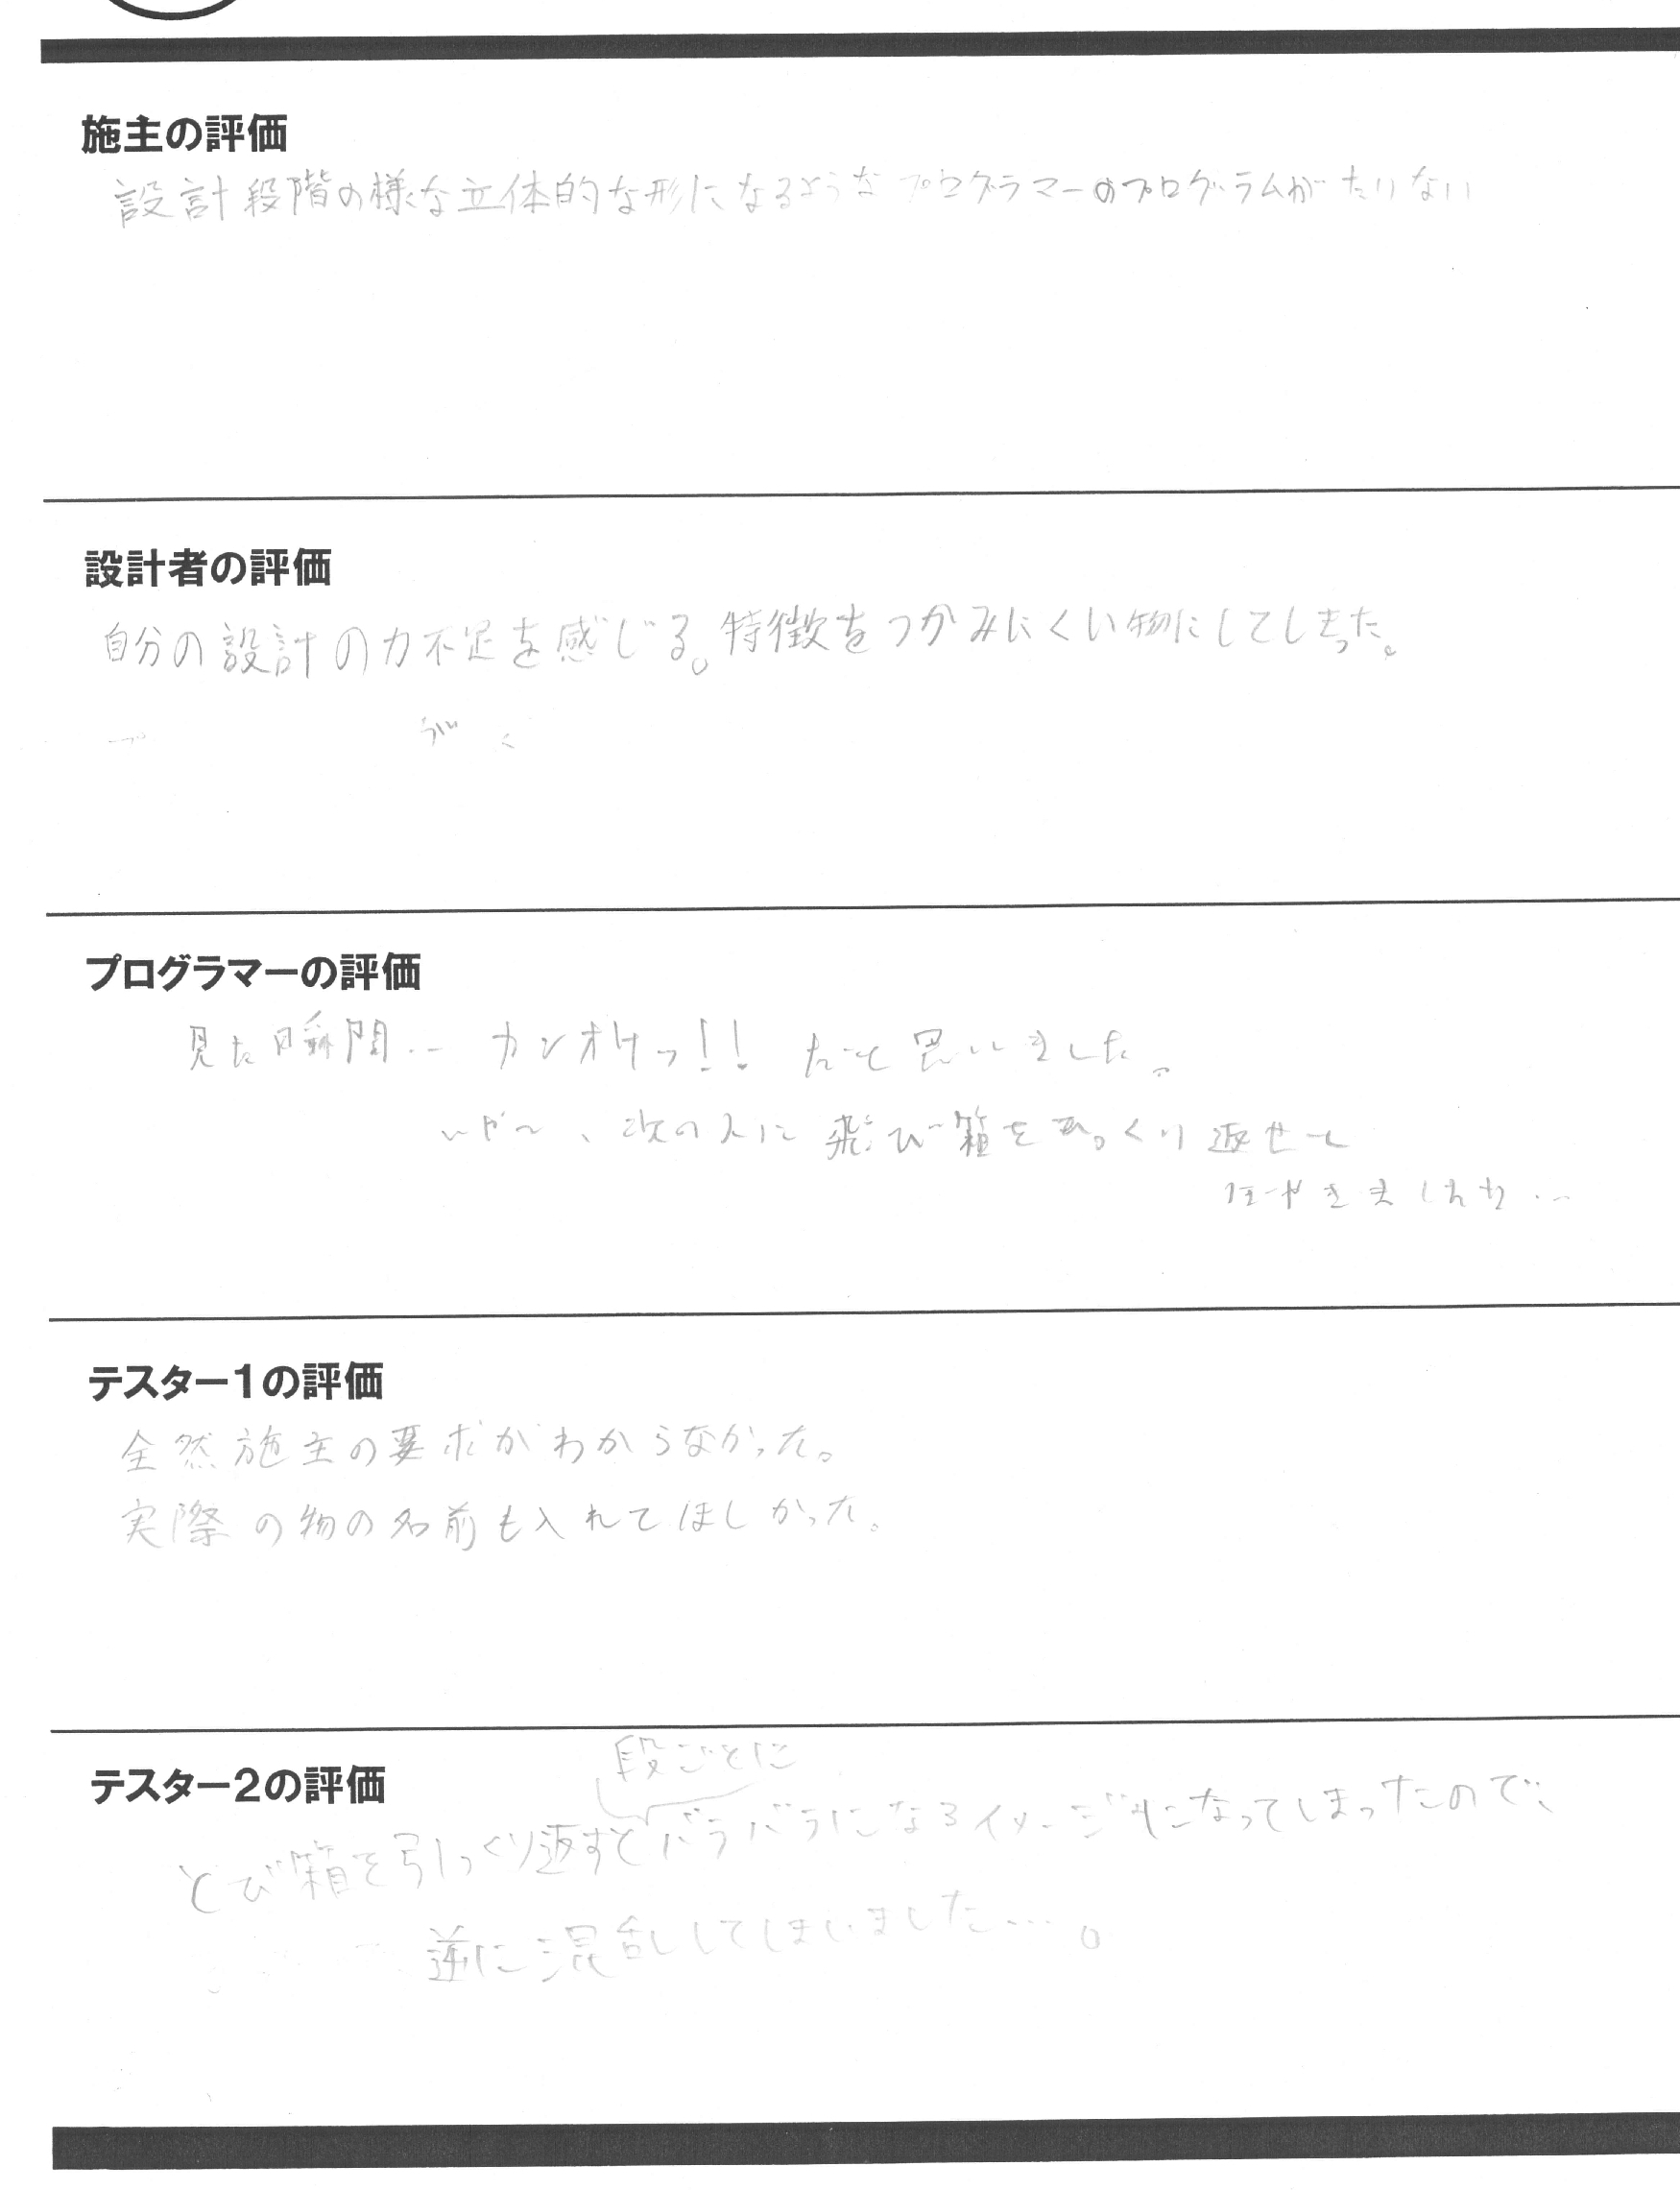 施主の評価
設計段階の様な立体的な形になるようなプログラマーのプログラムがたりない
設計者の評価
自分の設計の力不足を感じる。特徴をつかみにくい物にしてしまった。
プログラマーの評価
見た瞬間… カンオケッ!! だと思いました。
いや〜、次の人に飛び箱をひっくり返せと
テスター1の評価
全然施主の要求がわからなかった。
実際の物の名前も入れてほしかった。
段ごとに
テスター2の評価
とび箱を引っくり返すとバラバラになるイメージになってしまったので、
逆に混乱してしまいました…。